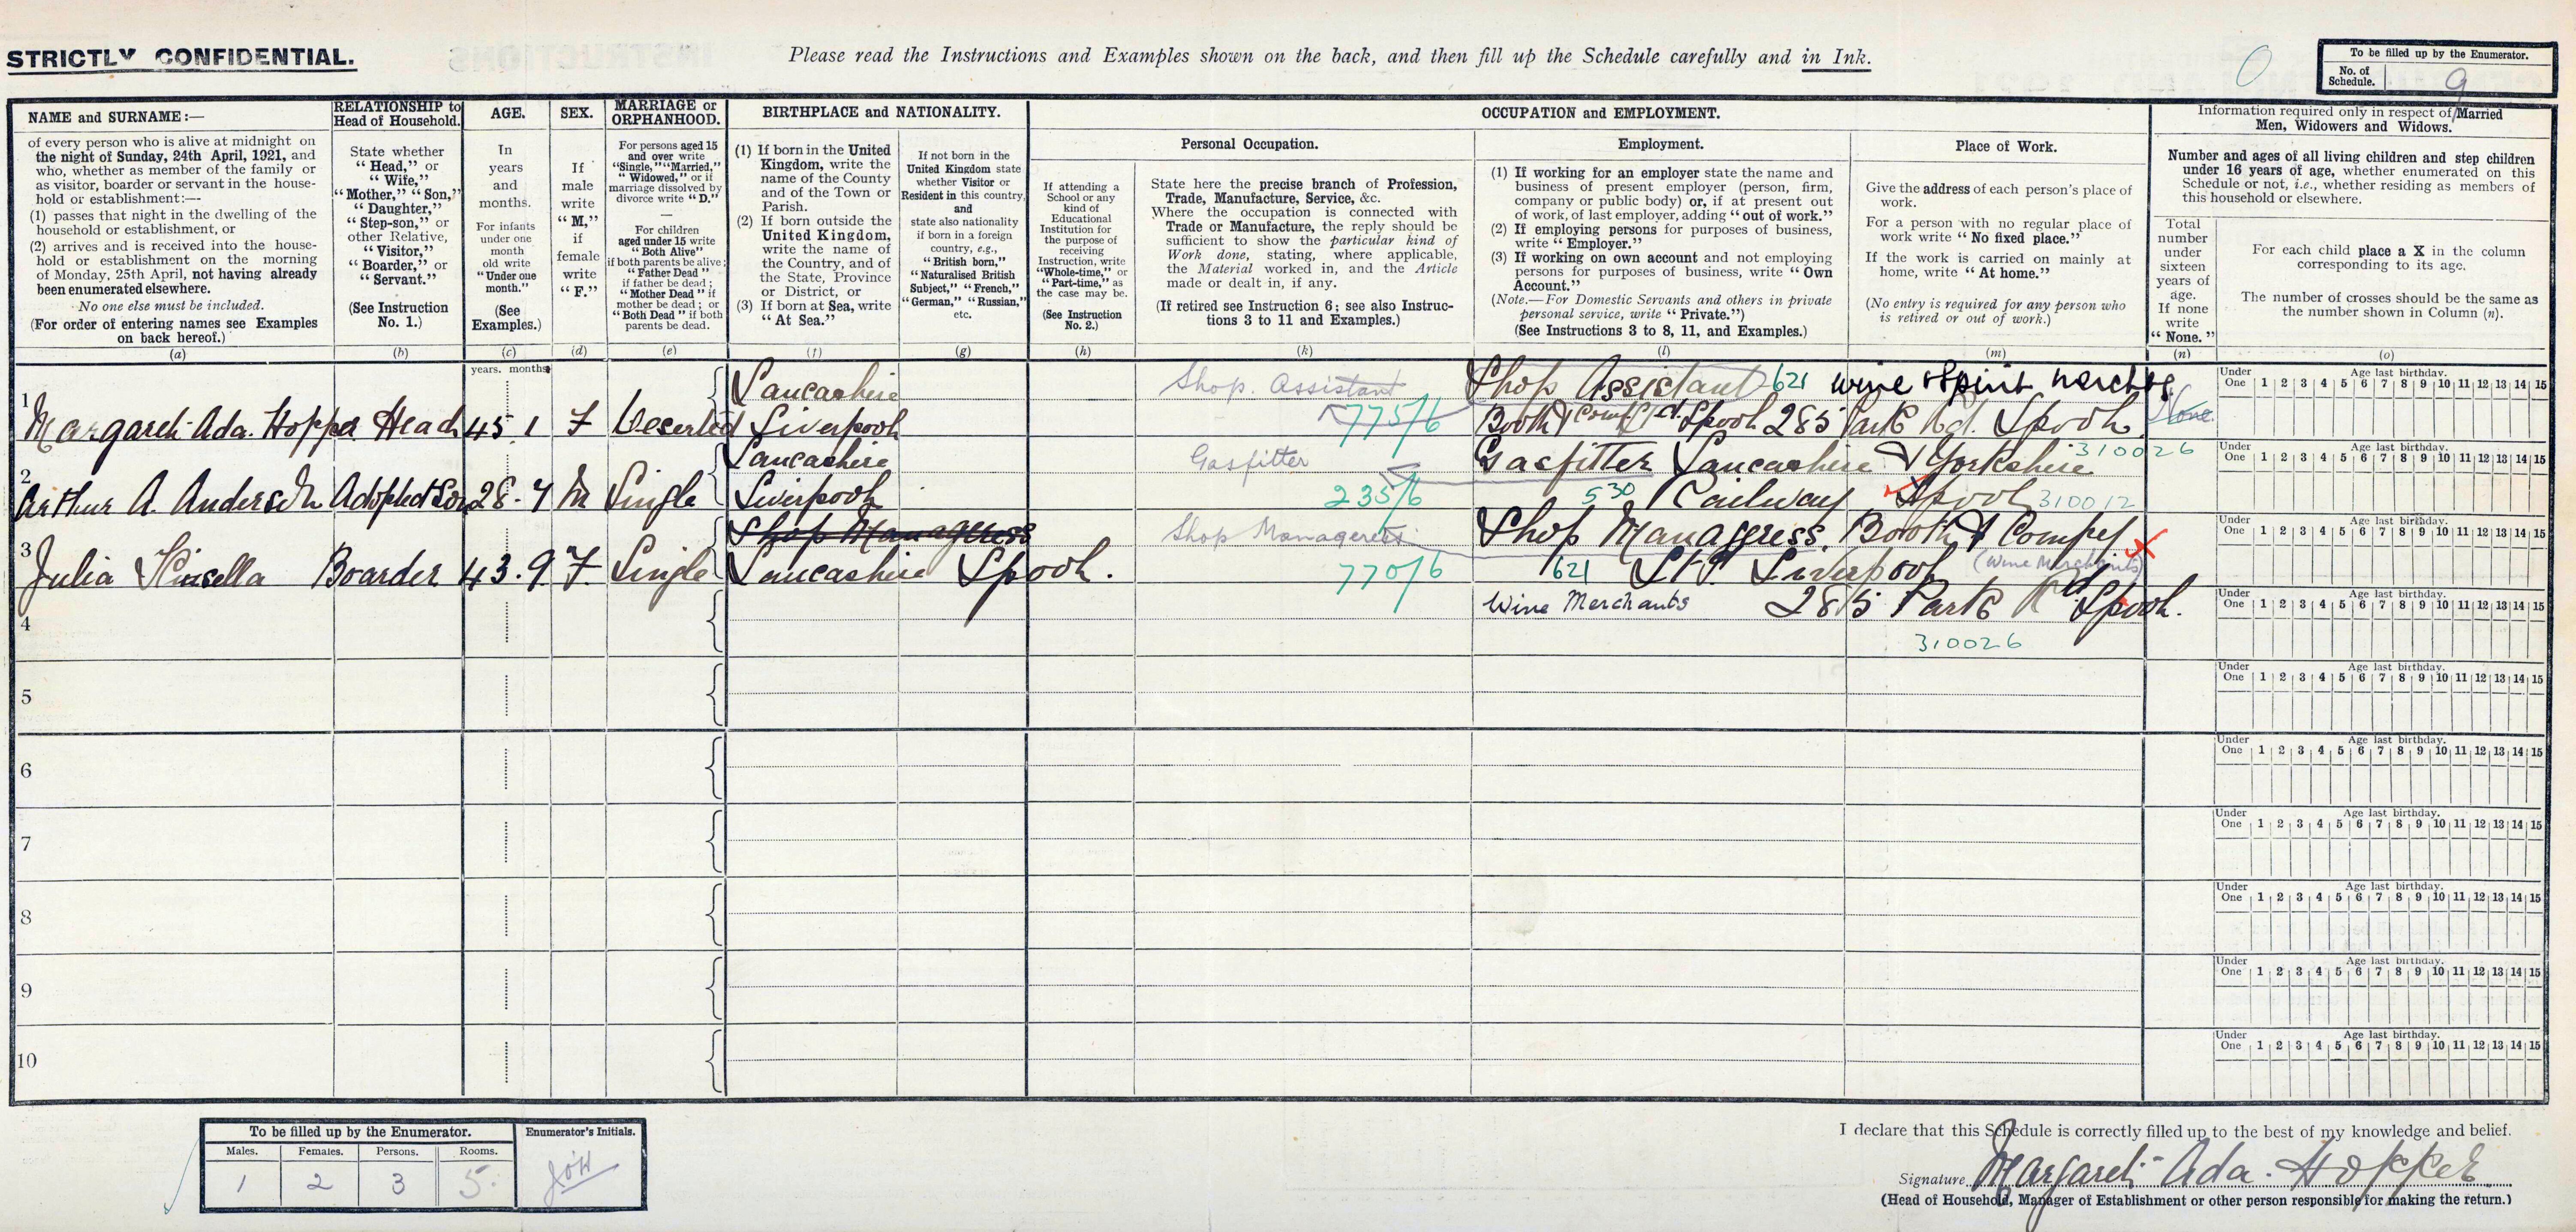 STRICTLY CONFIDENTIAL.
Please read the Instructions and Examples shown on the back, and then fill up the Schedule carefully and in Ink.
To be filled up by the Enumerator.
No. of Schedule. 9
NAME and SURNAME:—
of every person who is alive at midnight on
the night of Sunday, 24th April, 1921, and
who, whether as member of the family or
as visitor, boarder or servant in the house-
hold or establishment:—
(1) passes that night in the dwelling of the
household or establishment, or
(2) arrives and is received into the house-
hold or establishment on the morning
of Monday, 25th April, not having already
been enumerated elsewhere.
No one else must be included.
(For order of entering names see Examples
on back hereof.)
(a)
RELATIONSHIP to
Head of Household.
State whether
"Head," or
"Wife,"
"Mother," "Son,"
"Daughter,"
"Step-son," or
other Relative,
"Visitor,"
"Boarder," or
"Servant."
(See Instruction
No. 1.)
(b)
AGE.
In
years
and
months.
For infants
under one
month
old write
"Under one
month."
(See
Examples.)
(c)
SEX.
If
male
write
"M,"
if
female
write
"F."
(d)
MARRIAGE or
ORPHANHOOD.
For persons aged 15
and over write
"Single," "Married,"
"Widowed," or if
marriage dissolved by
divorce write "D."
For children
aged under 15 write
"Both Alive"
if both parents be alive;
"Father Dead"
if father be dead;
"Mother Dead" if
mother be dead; or
"Both Dead" if both
parents be dead.
(e)
BIRTHPLACE and NATIONALITY.
(1) If born in the United
Kingdom, write the
name of the County
and of the Town or
Parish.
(2) If born outside the
United Kingdom,
write the name of
the Country, and of
the State, Province
or District, or
(3) If born at Sea, write
"At Sea."
(f)
If not born in the
United Kingdom state
whether Visitor or
Resident in this country,
and
state also nationality
if born in a foreign
country, e.g.,
"British born,"
"Naturalised British
Subject," "French,"
"German," "Russian,"
etc.
(g)
OCCUPATION and EMPLOYMENT.
If attending a
School or any
kind of
Educational
Institution for
the purpose of
receiving
Instruction, write
"Whole-time," or
"Part-time," as
the case may be.
(See Instruction
No. 2.)
(h)
Personal Occupation.
State here the precise branch of Profession,
Trade, Manufacture, Service, &c.
Where the occupation is connected with
Trade or Manufacture, the reply should be
sufficient to show the particular kind of
Work done, stating, where applicable,
the Material worked in, and the Article
made or dealt in, if any.
(If retired see Instruction 6; see also Instruc-
tions 3 to 11 and Examples.)
(k)
Employment.
(1) If working for an employer state the name and
business of present employer (person, firm,
company or public body) or, if at present out
of work, of last employer, adding "out of work."
(2) If employing persons for purposes of business,
write "Employer."
(3) If working on own account and not employing
persons for purposes of business, write "Own
Account."
(Note.—For Domestic Servants and others in private
personal service, write "Private.")
(See Instructions 3 to 8, 11, and Examples.)
(l)
Place of Work.
Give the address of each person's place of
work.
For a person with no regular place of
work write "No fixed place."
If the work is carried on mainly at
home, write "At home."
(No entry is required for any person who
is retired or out of work.)
(m)
Information required only in respect of Married
Men, Widowers and Widows.
Number and ages of all living children and step children
under 16 years of age, whether enumerated on this
Schedule or not, i.e., whether residing as members of
this household or elsewhere.
Total
number
under
sixteen
years of
age.
If none
write
"None."
(n)
For each child place a X in the column
corresponding to its age.
The number of crosses should be the same as
the number shown in Column (n).
(o)
years. months.
Lancashire Shop Assistant Shop Assistant 621 Wine & Spirit Merchts
1 Margaret Ada. Hopper Head 45 1 F Deserted Liverpool 775/6 Booth & Comp Ltd Lpool 285 Park Rd. Lpool None
Under One 1 2 3 4 5 6 7 8 9 10 11 12 13 14 15 Age last birthday.
Lancashire Gasfitter Gasfitter Lancashire & Yorkshire 310026
2 Arthur A. Anderson Adopted Son 28-7 M Single Liverpool 235/6 530 Railway Lpool 310012
Under One 1 2 3 4 5 6 7 8 9 10 11 12 13 14 15 Age last birthday.
Shop Manageress Shop Manageress Shop Manageress. Booth & Compy
3 Julia Kinsella Boarder 43.9. F. Single Lancashire Lpool. 770/6 621 Ltd Liverpool (Wine Merchants)
Under One 1 2 3 4 5 6 7 8 9 10 11 12 13 14 15 Age last birthday.
4 Wine Merchants 285 Park Rd Lpool.
310026
Under One 1 2 3 4 5 6 7 8 9 10 11 12 13 14 15 Age last birthday.
5
Under One 1 2 3 4 5 6 7 8 9 10 11 12 13 14 15 Age last birthday.
6
Under One 1 2 3 4 5 6 7 8 9 10 11 12 13 14 15 Age last birthday.
7
Under One 1 2 3 4 5 6 7 8 9 10 11 12 13 14 15 Age last birthday.
8
Under One 1 2 3 4 5 6 7 8 9 10 11 12 13 14 15 Age last birthday.
9
Under One 1 2 3 4 5 6 7 8 9 10 11 12 13 14 15 Age last birthday.
10
Under One 1 2 3 4 5 6 7 8 9 10 11 12 13 14 15 Age last birthday.
To be filled up by the Enumerator. Enumerator's Initials.
Males. Females. Persons. Rooms.
1 2 3 5.
I declare that this Schedule is correctly filled up to the best of my knowledge and belief.
Signature Margaret Ada. Hopper
(Head of Household, Manager of Establishment or other person responsible for making the return.)